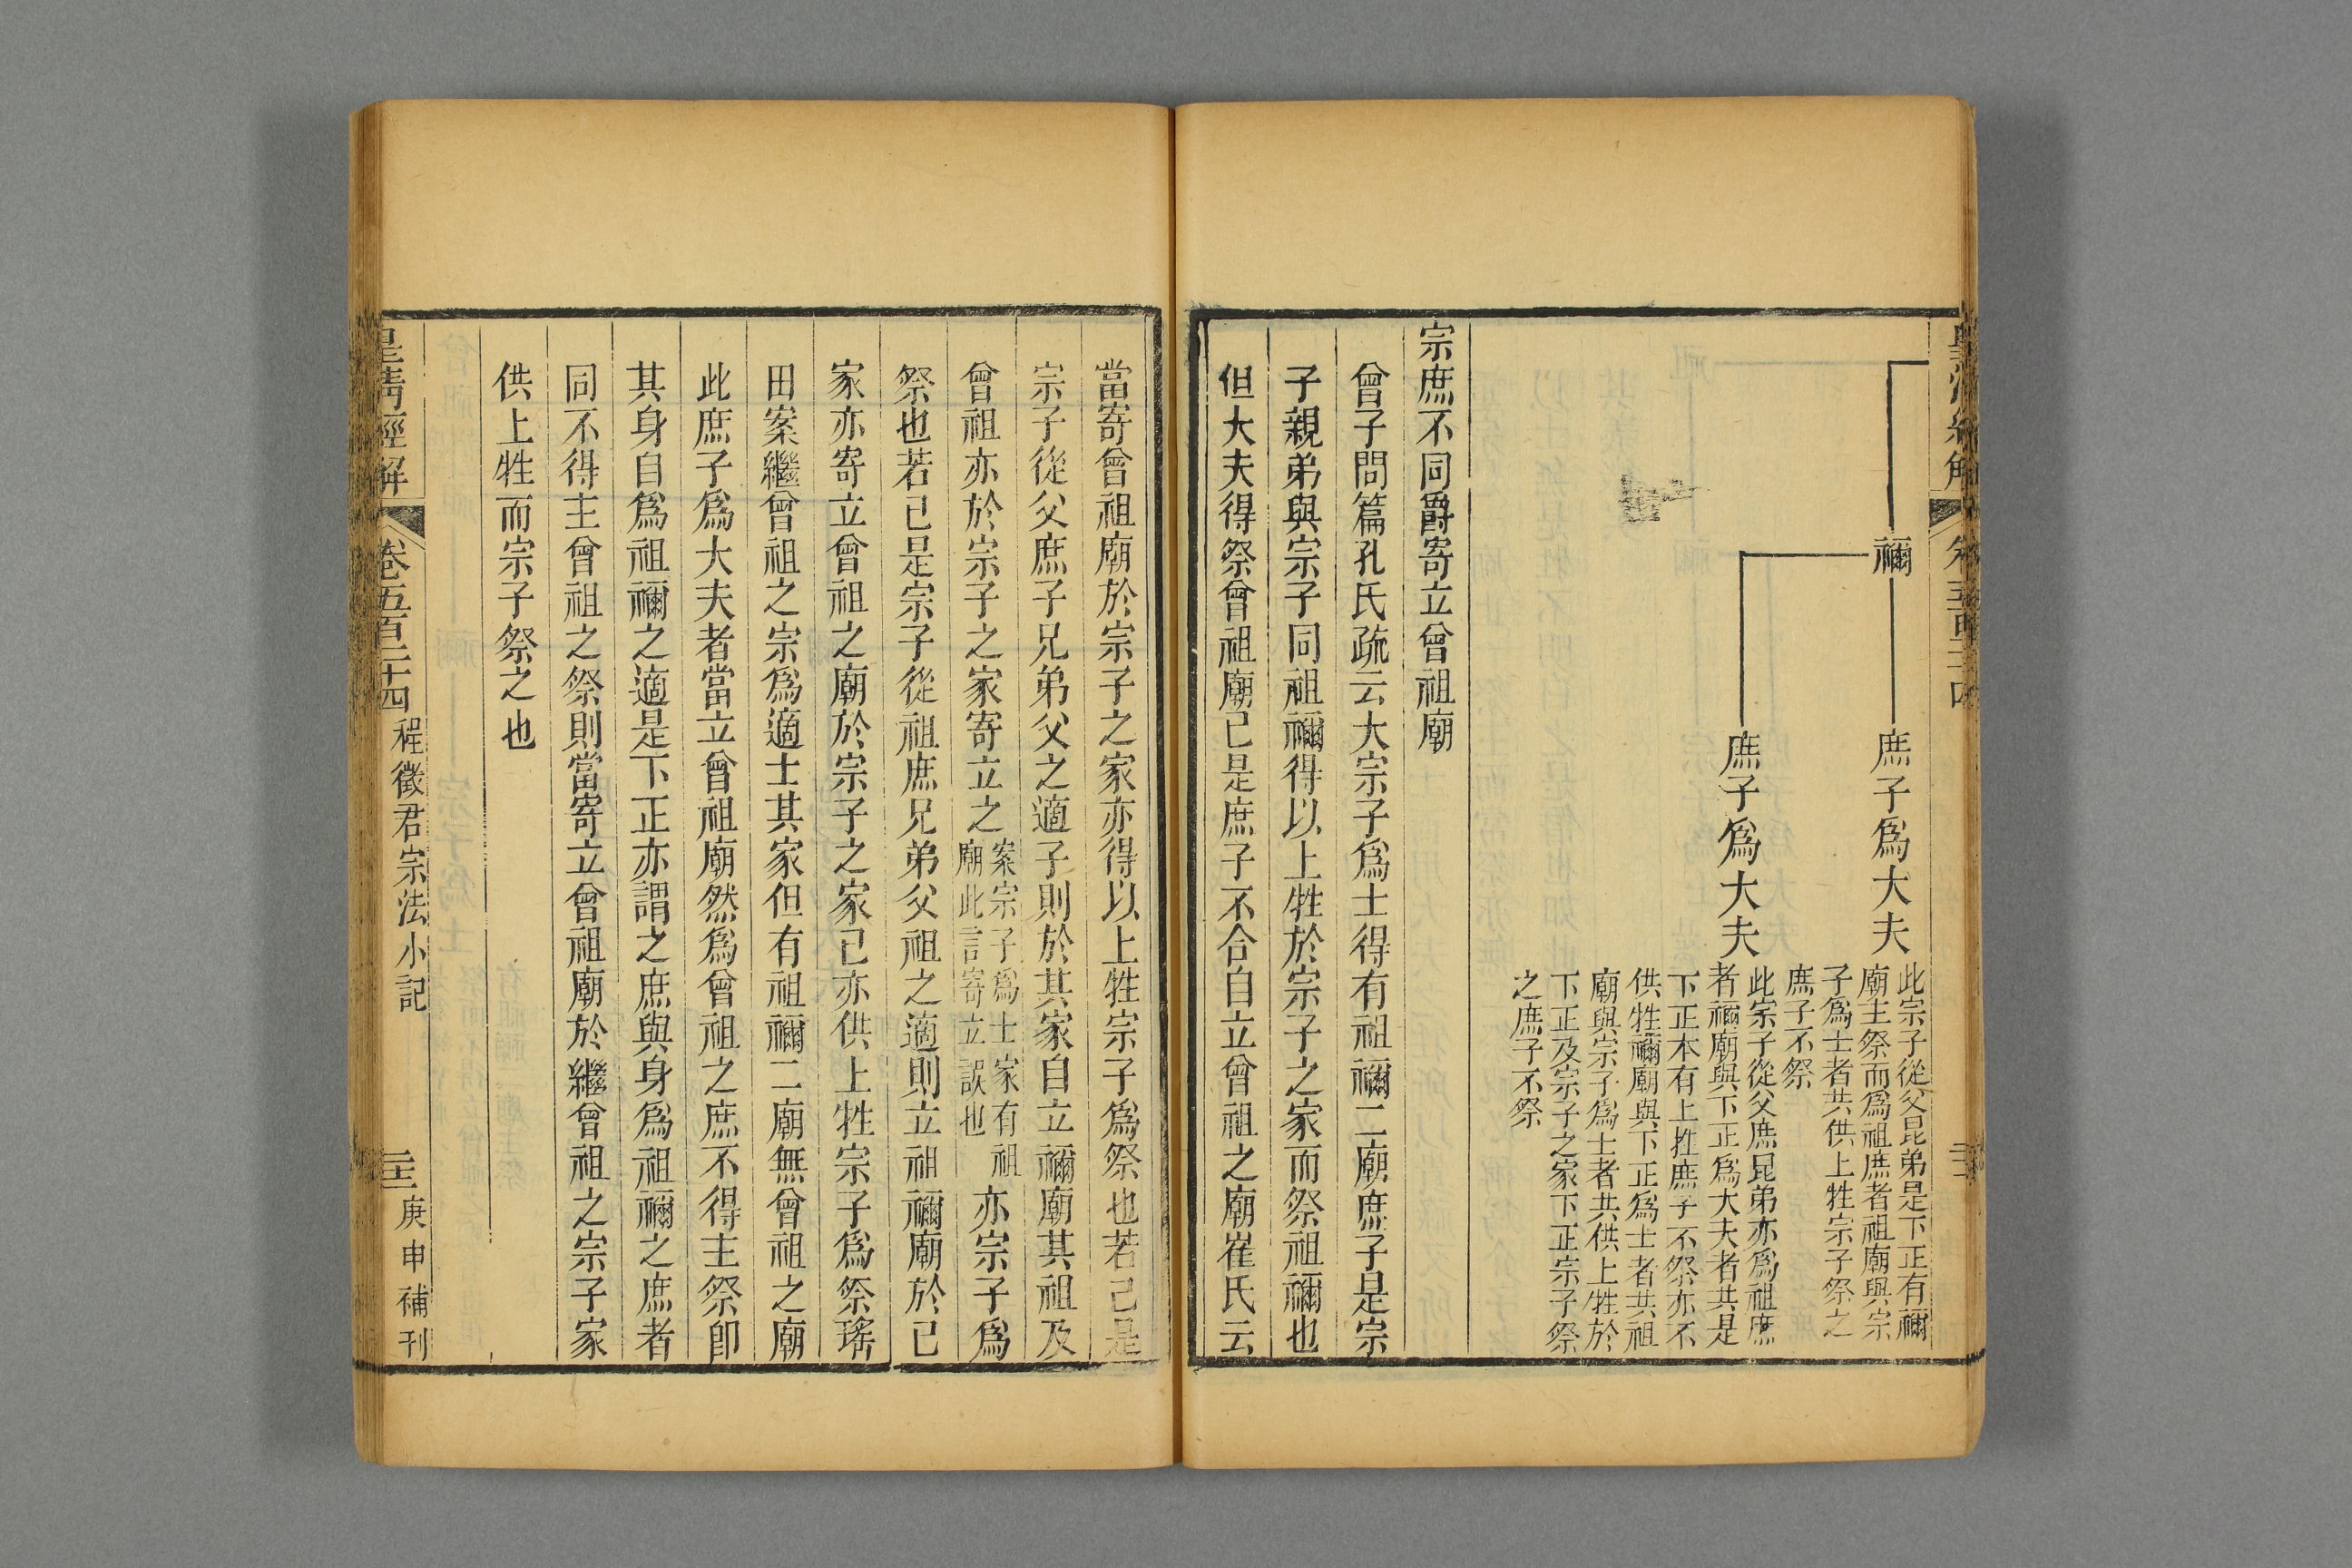 禰
庶子爲大夫
此宗子從父昆弟是下正有禰
廟主祭而爲祖庶者祖廟與宗
子爲士者共供上牲宗子祭之
庶子不祭
庶子爲大夫
此宗子從父庶昆弟亦爲祖庶
者禰廟與下正爲大夫者共是
下正本有上牲庶子不祭亦不
供牲禰廟與下正爲士者共祖
廟與宗子爲士者共供上牲於
下正及宗子之家下正宗子祭
之庶子不祭
宗庶不同爵寄立曾祖廟
曾子問篇孔氏疏云大宗子爲士得有祖禰二廟庶子是宗
子親弟與宗子同祖禰得以上牲於宗子之家而祭祖禰也
但大夫得祭曾祖廟己是庶子不合自立曾祖之廟崔氏云
當寄曾祖廟於宗子之家亦得以上牲宗子爲祭也若己是
宗子從父庶子兄弟父之適子則於其家自立禰廟其祖及
曾祖亦於宗子之家寄立之
案宗子爲士家有祖
廟此言寄立誤也
亦宗子爲
祭也若己是宗子從祖庶兄弟父祖之適則立祖禰廟於己
家亦寄立曾祖之廟於宗子之家己亦供上牲宗子爲祭瑤
田案繼曾祖之宗爲適士其家但有祖禰二廟無曾祖之廟
此庶子爲大夫者當立曾祖廟然爲曾祖之庶不得主祭卽
其身自爲祖禰之適是下正亦謂之庶與身爲祖禰之庶者
同不得主曾祖之祭則當寄立曾祖廟於繼曾祖之宗子家
供上牲而宗子祭之也
皇清經解
卷五百二十四
程徵君宗法小記
庚申補刊